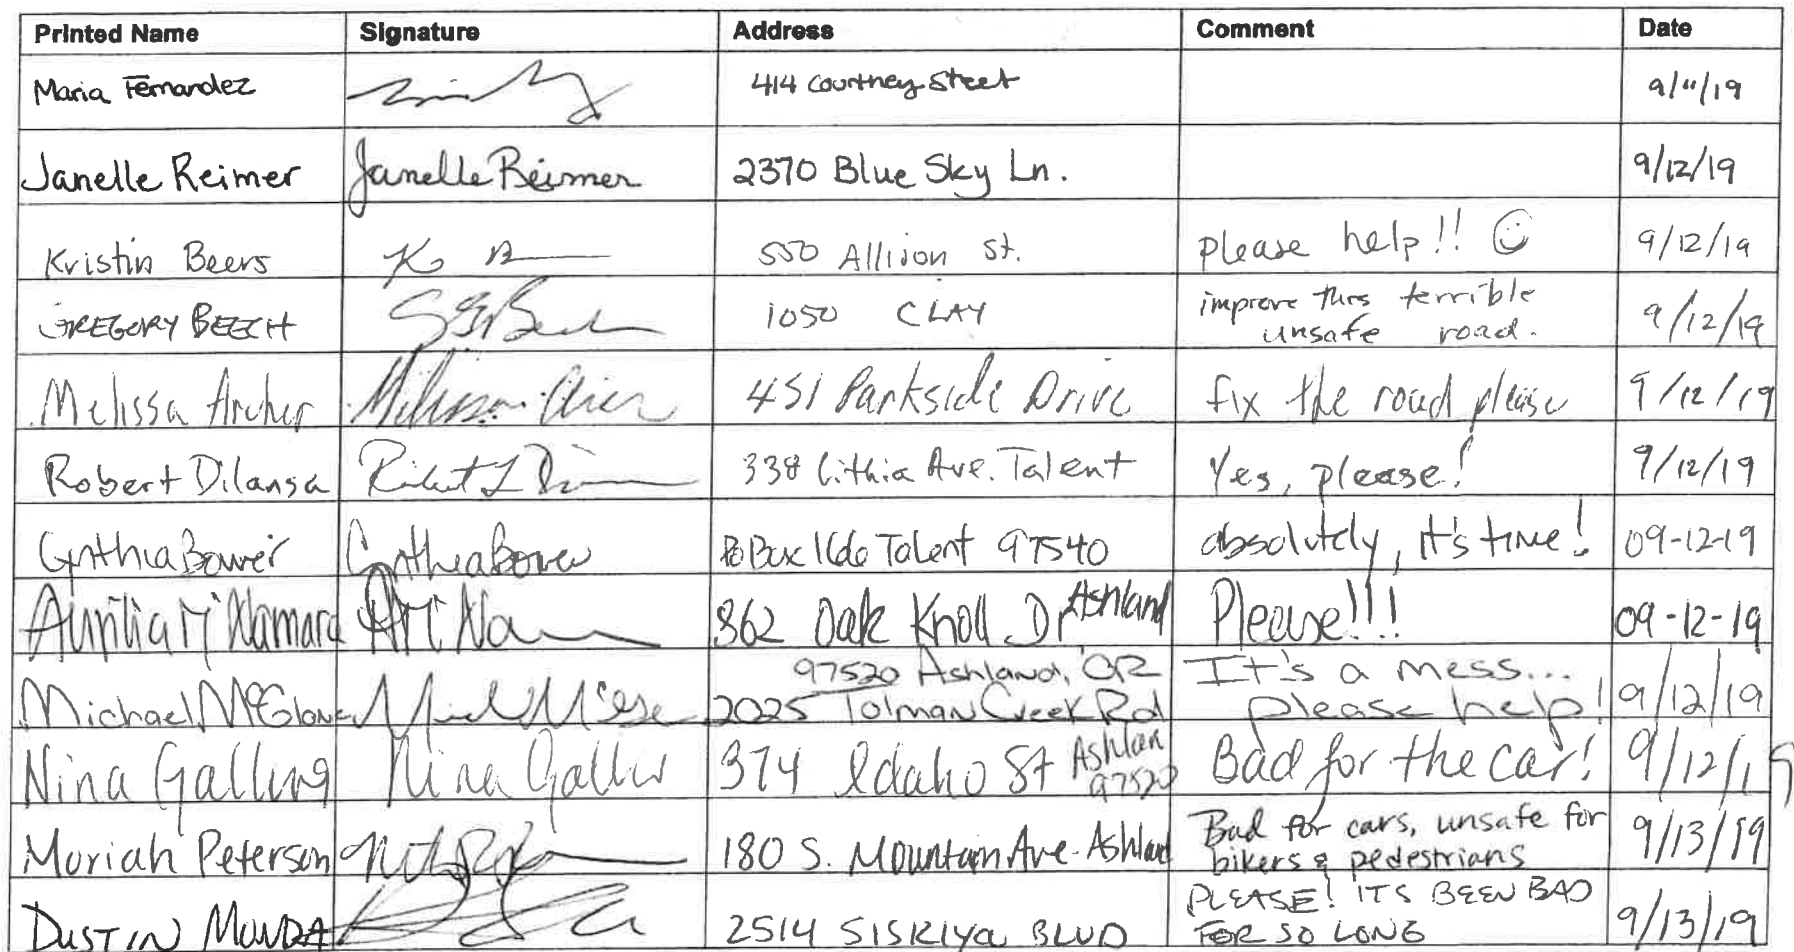 Printed Name Signature Address Comment Date
Maria Fernandez 414 Courtney Street 9/11/19
Janelle Reimer Janelle Reimer 2370 Blue Sky Ln. 9/12/19
Kristin Beers K B 550 Allison St. please help!! ☺ 9/12/19
GREGORY BEECH 1050 CLAY improve this terrible
unsafe road. 9/12/19
Melissa Archer Melissa Archer 451 Parkside Drive fix the road please 9/12/19
Robert Dilansa Robert L 338 Lithia Ave. Talent Yes, please! 9/12/19
Cynthia Bower Cynthia Bower PO Box 166 Talent 97540 absolutely, it's time! 09-12-19
862 Oak Knoll Dr Ashland Please!!! 09-12-19
Michael McGlone 97520 Ashland, OR
2025 Tolman Creek Rd It's a mess...
please help! 9/12/19
Nina Galling Nina 374 Idaho St Ashlan
97520 Bad for the car! 9/12/19
Moriah Peterson 180 S. Mountain Ave. Ashland Bad for cars, unsafe for
bikers & pedestrians 9/13/19
DUSTIN 2514 SISKIYOU BLVD PLEASE! ITS BEEN BAD
FOR SO LONG 9/13/19